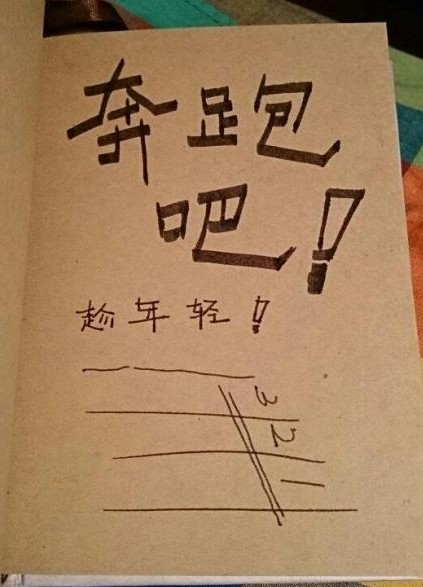 奔跑
吧!
趁年轻!
3
2
1